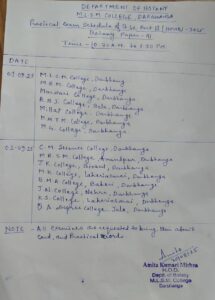 DEPARTMENT OF BOTANY
M.L.S.M. COLLEGE, DARBHANGA
Practical Exam Schedule of B.Sc. Part II (HONS)
Paper -
Time - 10.30 A.M. to 1.30 P.M.
DATE
01.09.25 M.L.S.M. College, Darbhanga
M.R.M. College, Darbhanga
Marwari College, Darbhanga
College, Darbhanga
College, Darbhanga
College, Darbhanga
College, Darbhanga
02.09.25 C.M. Science College, Darbhanga
College, Anandpur, Darbhanga
J.K. College, Biraul, Darbhanga
M.K. College, Laheriasarai, Darbhanga
B.M.A. College, Baheri, Darbhanga
J.N. College, Nehra, Darbhanga
K.S. College, Laheriasarai, Darbhanga
Degree College, Jale, Darbhanga
NOTE - All Examinees are requested to bring their admit
card, and Practical records
Amita Kumari Mishra
H.O.D.
Deptt. of Botany
M.L.S.M. College
Darbhanga